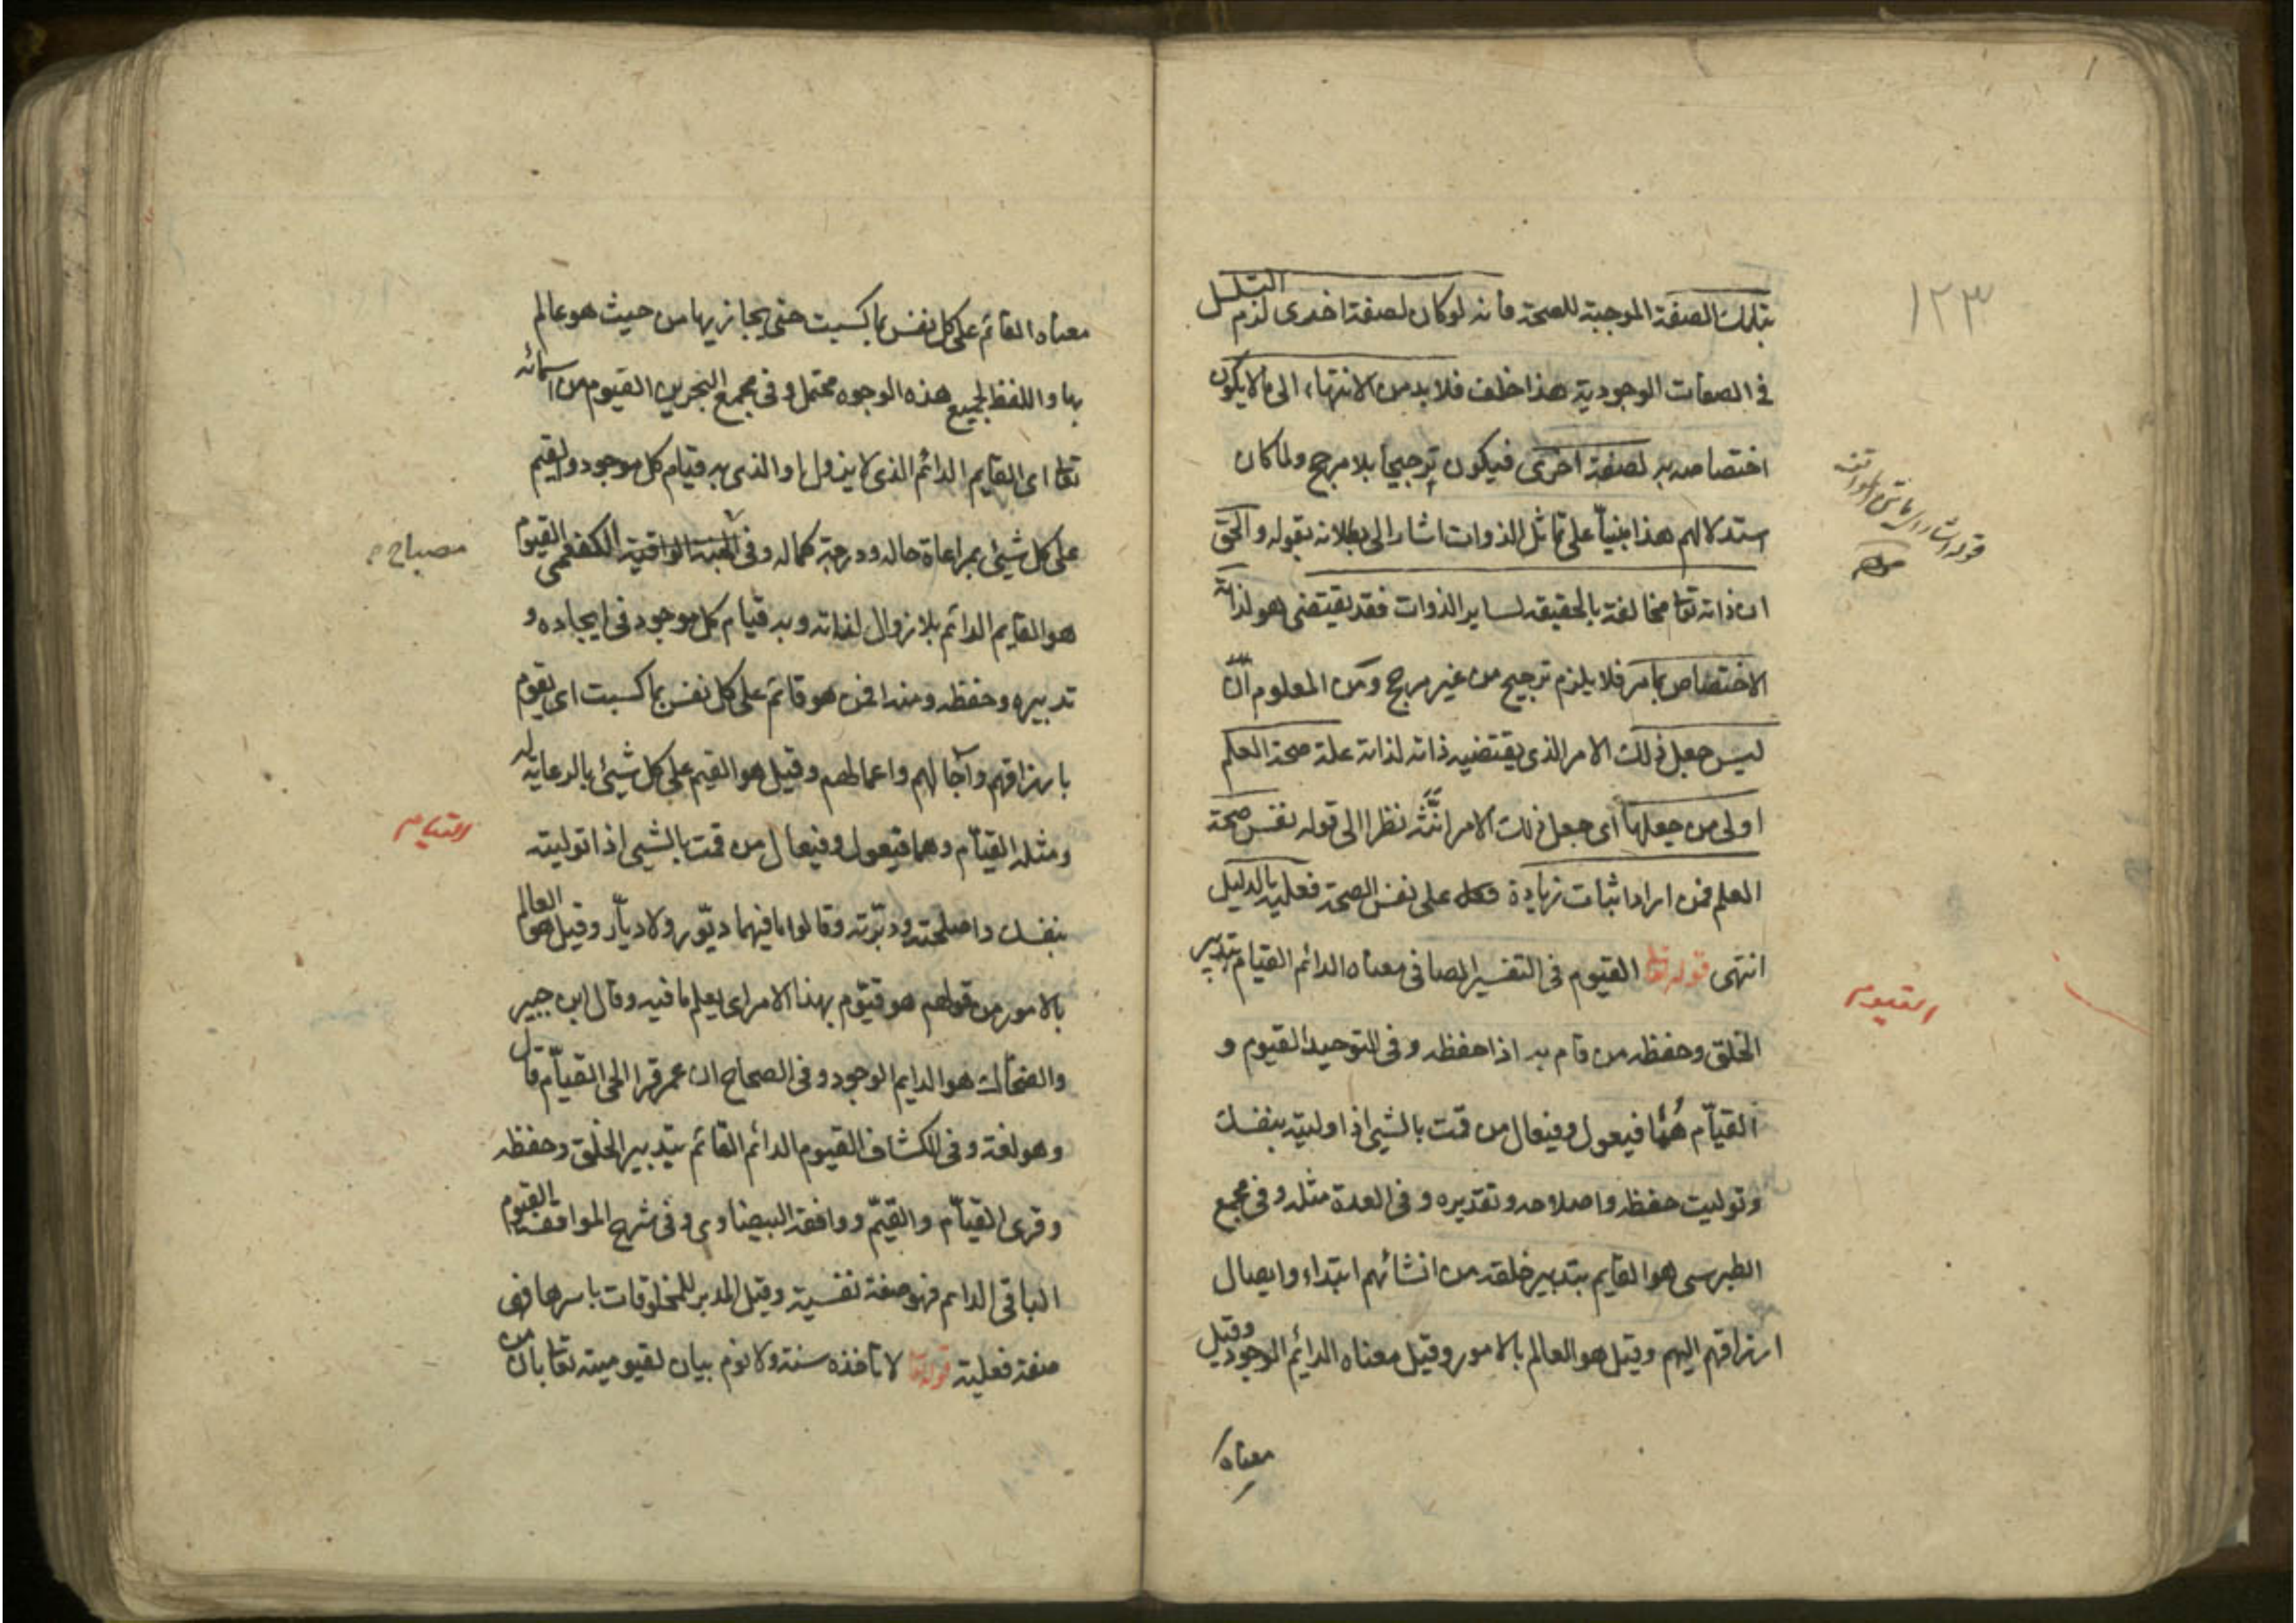 ١٢٣
بتلك الصفة الموجبة للصحة فانه لو كان لصفة اخرى لزم التسلسل
في الصفات الوجودية هذا خلف فلا بد من الانتهاء الى ما لا يكون
اختصاصه به لصفة اخرى فيكون ترجيحا بلا مرجح ولما كان
استدلالهم هذا مبنياً على تماثل الذوات اشار الى بطلانه بقوله والحق
ان ذاته تعا مخالفة بالحقيقه لساير الذوات فقد يقتضى هو لذاته
الاختصاص بامر فلا يلزم ترجيح من غير مرجح ومن المعلوم انّ
ليس جعل ذلك الامر الذى يقتضيه ذاته لذاته علة صحة العلم
اولى من جعلها اى جعل ذلك الامر انّثه نظرا الى قوله نفس صحة
العلم فمن اراد اثبات زيادة على نفس الصحة فعليه بالدليل
انتهى قوله تعا القيوم فى التفسير الصافى معناه الدائم القيام بتدبير
الخلق وحفظه من قام به اذا حفظه وفى التوحيد القيوم و
القيّام هما فيعول وفيعال من قمت بالشيى اذا وليته بنفسك
وتوليت حفظه واصلاحه وتقديره وفى العدة مثله وفى مجمع
الطبرسى هو القايم بتدبير خلقه من انشائهم ابتداء وايصال
ارزاقهم اليهم وقيل هو العالم بالامور وقيل معناه الدائم الوجود وقيل
معناه
القيوم
معناه القائم على كل نفس بما كسبت حتى يجازيها من حيث هو عالم
بها واللفظ لجميع هذه الوجوه محتمل وفى مجمع البحرين القيوم من اسمائه
تعا اى القايم الدائم الذى لا يزول او الذى به قيام كل موجود والقيم
على كل شيئ بمراعاة حاله ودرجة كماله وفى الجنة الواقية الكفعمى القيوم
هو القايم الدائم بلا زوال لذاته وبه قيام كل موجود فى ايجاده و
تدبيره وحفظه ومنه افمن هو قائم على كل نفس بما كسبت اى يقوم
بارزاقهم وآجالهم واعمالهم وقيل هو القيم على كل شيئ بالرعاية له
ومثله القيّام وهما فيعول وفيعال من قمت بالشيى اذا توليته
بنفسك واصلحته ودبّرته وقالوا ما فيهما ديّور ولا ديّار وقيل هو العالم
بالامور من قولهم هو قيّوم بهذا الامر اى يعلم ما فيه وقال ابن جبير
والضحاك هو الدايم الوجود وفى الصحاح ان عمر قرا الحى القيّام قال
وهو لغة وفى الكشاف القيوم الدائم القائم بتدبير الخلق وحفظه
وقرى القيّام والقيّم ووافقه البيضاوى وفى شرح المواقف القيوم
الباقى الدايم فهو صفة نفسية وقيل المدبر للمخلوقات باسرها فهى
صفة فعلية قوله تعا لا تاخذه سنة ولا نوم بيان لقيوميته تعا بان من
مصباح
القيام